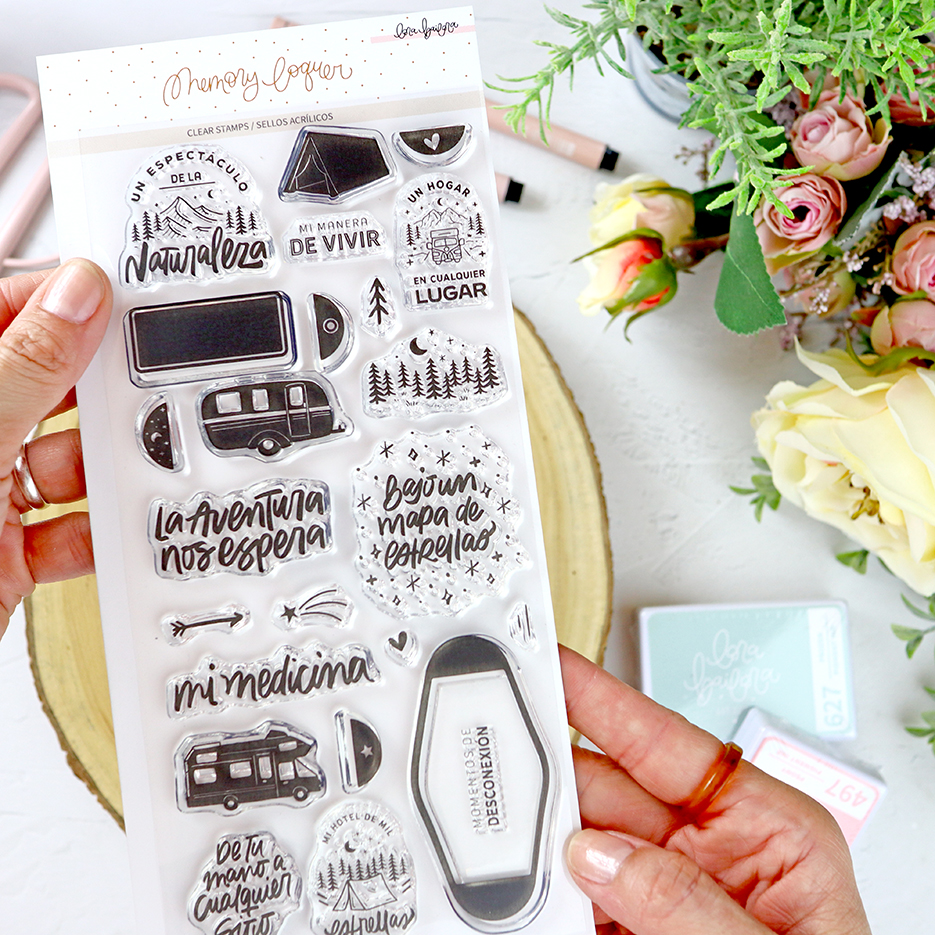 Lora Bailora
Memory loquer
CLEAR STAMPS / SELLOS ACRÍLICOS
UN ESPECTÁCULO
DE LA
Naturaleza
MI MANERA
DE VIVIR
UN HOGAR
EN CUALQUIER
LUGAR
La Aventura
nos espera
Bajo un
mapa de
estrellas
mi medicina
MOMENTOS DE
DESCONEXIÓN
De tu
mano, a
cualquier
sitio
MI HOTEL DE MIL
estrellas
Lora
Bailora
627
497